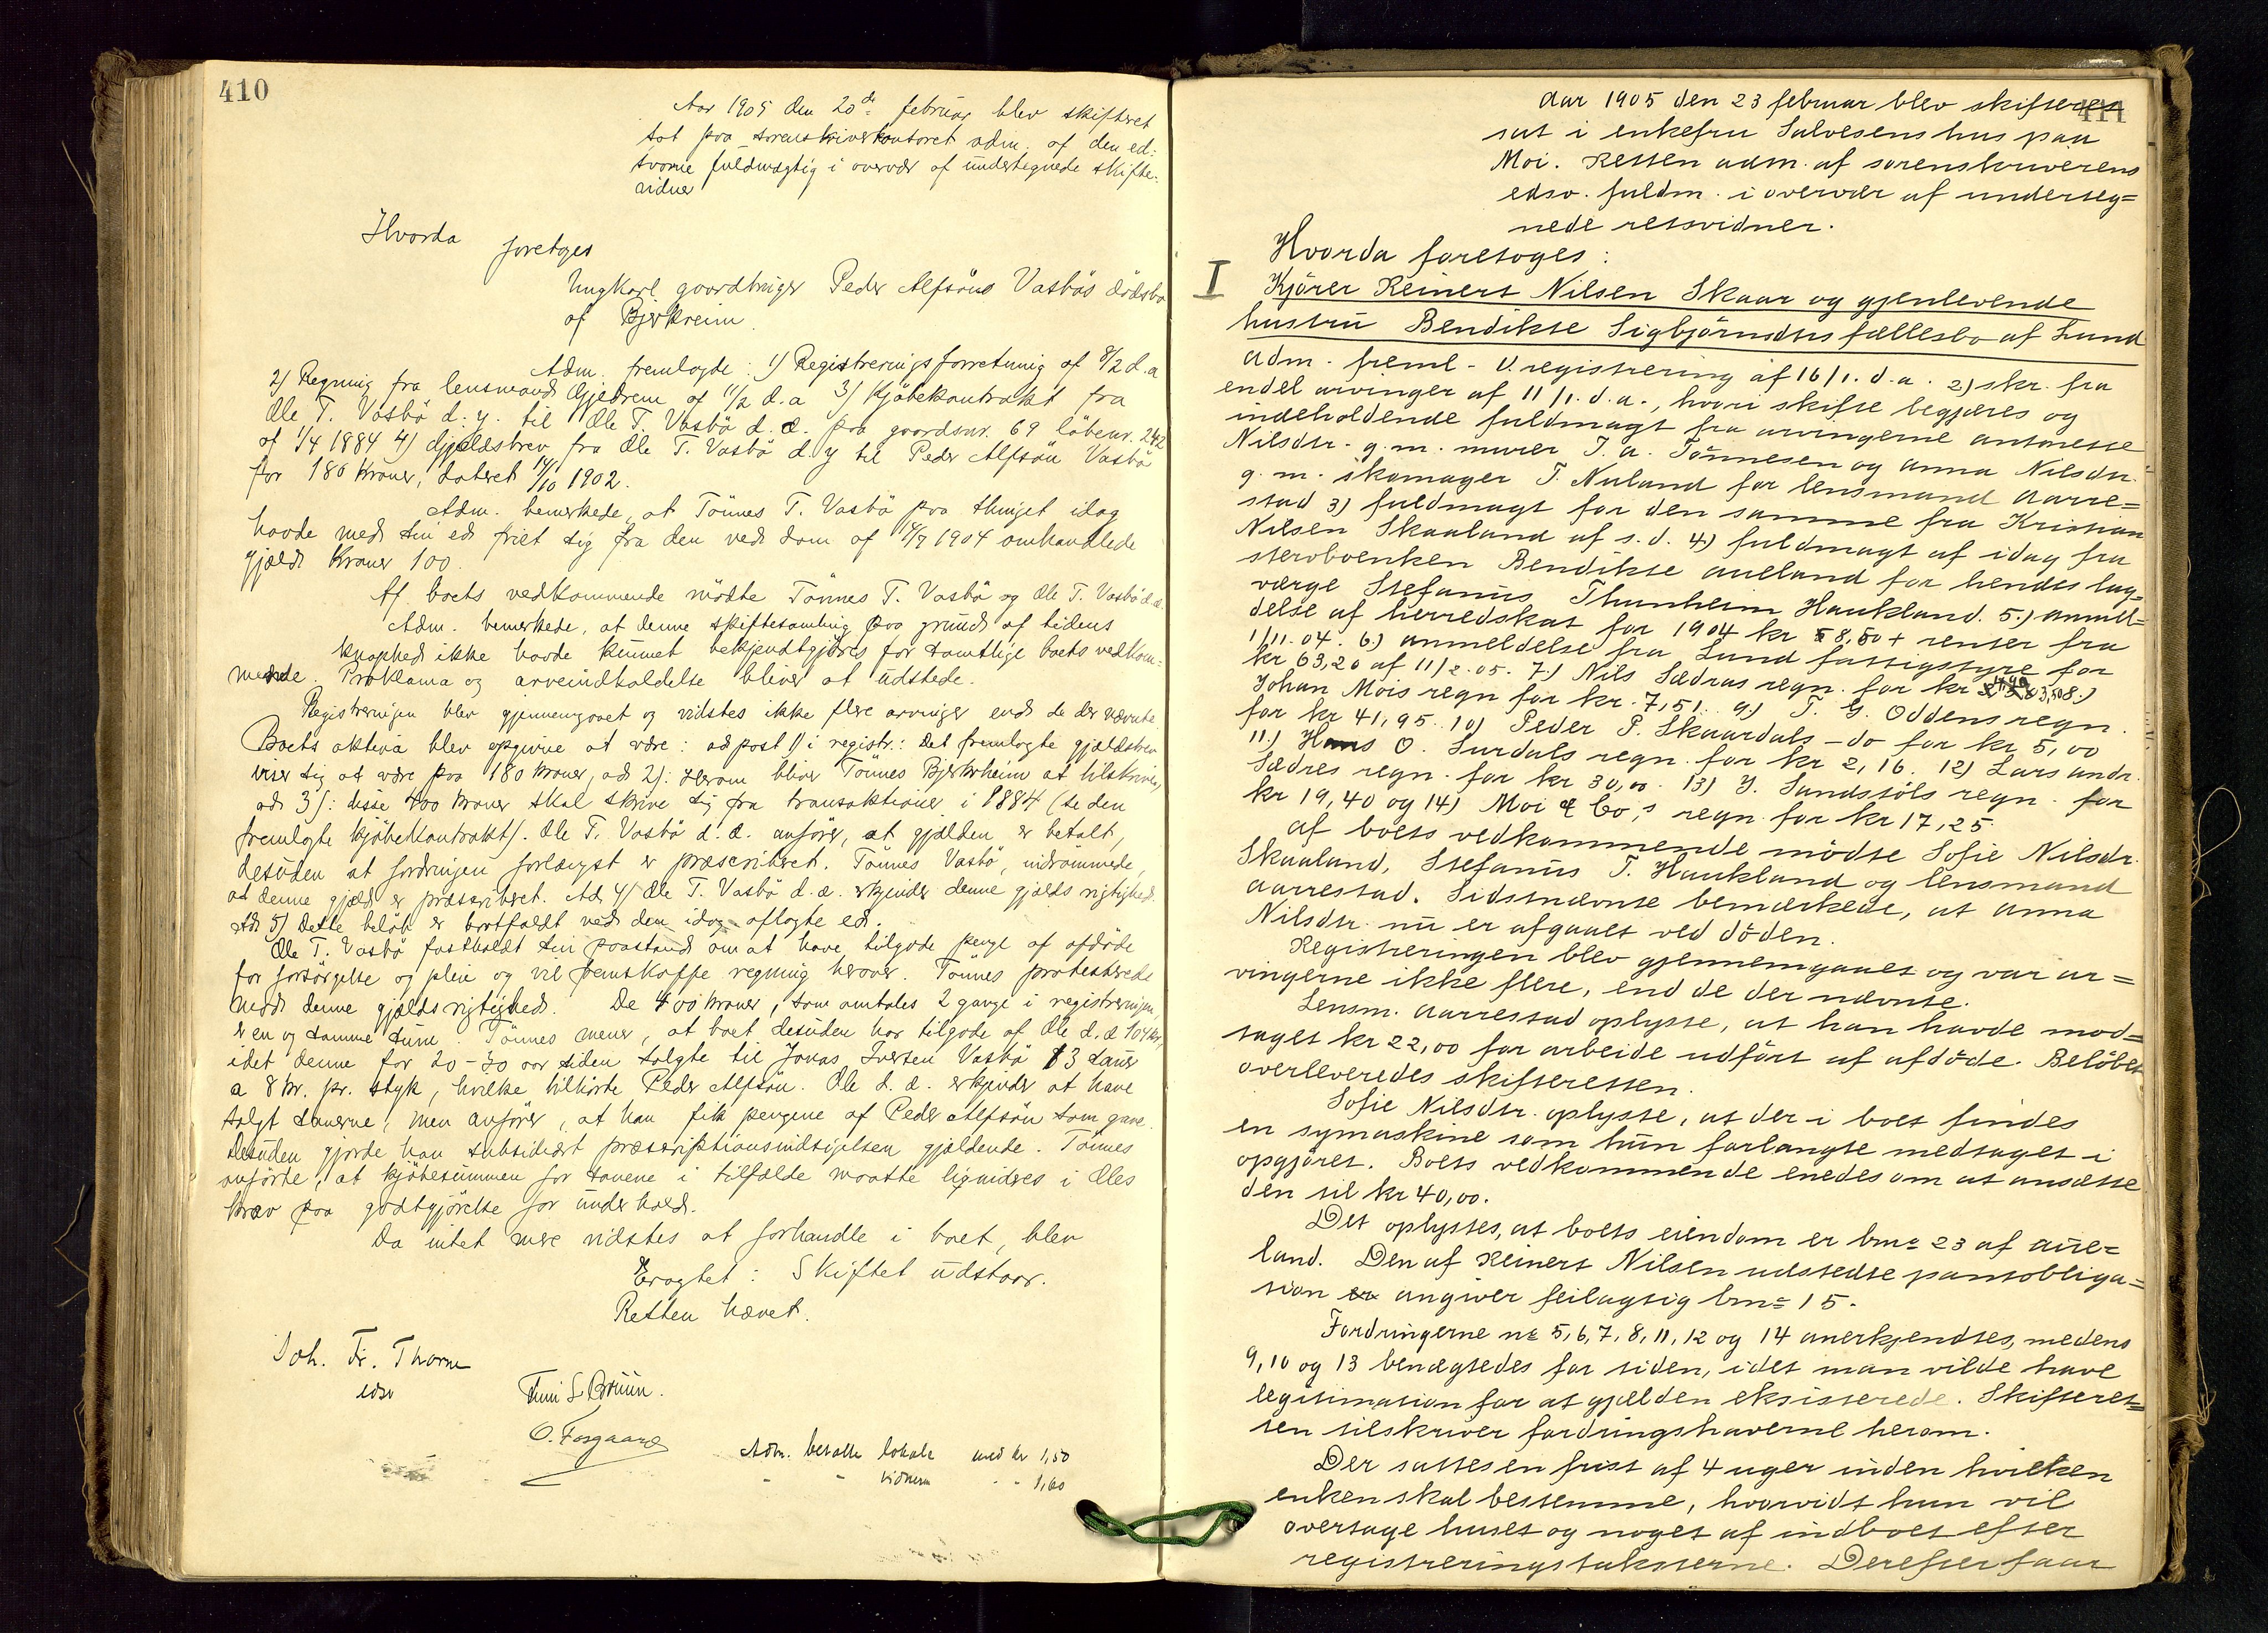 410
Aar 1905 den 20de februar blev skifteret
sat paa sorenskriverkontoret adm. af den ed-
svorne fuldmægtig i overvær af undertegnede skifte-
vidner
Hvorda foretoges
Ungkarl gaardbruger Peder Alfsøns Vasbøs dødsbo
af Bjerkreim.
Adm. fremlagde: 1) Registreringsforretning af 8/2 d.a
2) Regning fra lensmand Gjedrem af 11/2 d.a 3) Kjøbekontrakt fra
Ole T. Vasbø d.y. til Ole T. Vasbø d.æ. paa gaardsnr. 69 løbenr. 242
af 1/4 1884 4) Gjældsbrev fra Ole T. Vasbø d.y til Peder Alfsøn Vasbø
for 180 kroner, dateret 14/10 1902.
Adm. bemerkede, at Tønnes T. Vasbø paa thinget idag
havde med sin ed friet sig fra den ved dom af 14/7 1904 omhandlede
gjæld kroner 100.
Af boets vedkommende mødte Tønnes T. Vasbø og Ole T. Vasbø d.æ.
Adm. bemerkede, at denne skiftesamling paa grund af tidens
knaphed ikke havde kunnet bekjendtgjøres for samtlige boets vedkom-
mende. Proklama og arveindkaldelse bliver at udstede.
Registreringen blev gjennemgaaet og vidstes ikke flere arvinger end de der nævnte.
Boets aktiva blev opgivne at være: ad post 1) i registr.: Det fremlagte gjældsbrev
viser sig at være paa 180 kroner, ad 2): Herom bliver Tønnes Bjerkrheim at tilskrives,
ad 3): disse 400 kroner skal skrive sig fra transaktioner i 1884 (se den
fremlagte kjøbekontrakt). Ole T. Vasbø d.æ. anfører, at gjælden er betalt,
desuden at fordringen forlængst er præscriberet. Tønnes Vasbø indrømmede,
at denne gjæld er præscriberet. Ad 4) Ole T. Vasbø d.æ. erkjender denne gjælds rigtighed.
Ad 5) Dette beløb er bortfaldt ved den idag aflagte ed.
Ole T. Vasbø fastholdt sin paastand om at have tilgode penge af afdøde
for forsørgelse og pleie og vil fremskaffe regning herover. Tønnes protesterede
mod denne gjælds rigtighed. De 400 kroner, som omtales 2 gange i registreringen,
er en og samme sum. Tønnes mener, at boet desuden har tilgode af Ole d.æ 104 kr,
idet denne for 20-30 aar siden solgte til Jonas Iversen Vasbø 13 sauer
a 8 kr. pr. styk, hvilke tilhørte Peder Alfsøn. Ole d.æ. erkjender at have
solgt sauerne, men anfører, at han fik pengene af Peder Alfsøn som gave.
Desuden gjorde han subsidiært præscriptionsindsigelsen gjældende. Tønnes
anførte, at kjøbesummen for sauene i tilfælde maatte liqvideres i Oles
krav paa godtgjørelse for underhold.
Da intet mere vidstes at forhandle i boet, blev
Eragtet: Skiftet udstaar.
Retten hævet.
Joh. Fr. Thorne
edsv
Finn S Bruun.
O. Fosgaard
Adm. betalte lokale med kr 1,50
" " vidnerne " " 1,60
411
Aar 1905 den 23 februar blev skifteret
sat i enkefru Salvesens hus paa
Moi. Retten adm. af sorenskriverens
edsv. fuldm. i overvær af underteg=
nede retsvidner.
Hvorda foretoges:
I Kjører Reinert Nilsen Skaar og gjenlevende
hustru Bendikte Sigbjørnsdtrs fællesbo af Lund
Adm. freml. 1). registrering af 16/1. d.a. 2) skr. fra
endel arvinger af 11/1. d.a., hvori skifte begjæres og
indeholdende fuldmagt fra arvingerne antonette
Nilsdtr. g.m. murer T. A. Tønnesen og Anna Nilsdtr.
g.m. skomager T. Nuland for lensmand Aarre=
stad 3) fuldmagt for den samme fra Kristian
Nilsen Skaaland af s.d. 4) fuldmagt af idag fra
stervboenken Bendikte aueland for hendes lag=
værge Stefanus Thunheim Haukland. 5.) anmel=
delse af herredskat for 1904 kr 8,50 + renter fra
1/11.04. 6.) anmeldelse fra Lund fattigstyre for
kr 63,20 af 11/2.05. 7.) Nils Sædras regn. for kr 3,50 8.)
Johan Mois regn for kr. 7,51. 9.) T. G. Oddens regn.
for kr 41,95. 10) Peder P. Skaardals - do for kr 5,00
11.) Hans O. Surdals regn. for kr 2,16. 12) Lars andr.
Sædres regn. for kr 30,00. 13) Y. Sandstøls regn. for
kr 19,40 og 14) Moi & Co,s regn. for kr 17,25.
af boets vedkommende mødte Sofie Nilsdtr.
Skaaland, Stefanus T. Haukland og lensmand
Aarrestad. Sidstnævnte bemærkede, at Anna
Nilsdtr. nu er afgaaet ved døden.
Registreringen blev gjennemgaaet og var ar=
vingerne ikke flere, end de der nævnte.
Lensm. Aarrestad oplyste, at han havde mod=
taget kr 22,00 for arbeide udført af afdøde. Beløbet
overleveredes skifteretten.
Sofie Nilsdtr. oplyste, at der i boet findes
en symaskine som hun forlangte medtaget i
opgjøret. Boets vedkommende enedes om at ansætte
den til kr 40,00.
Det oplystes, at boets eiendom er bno 23 af aue=
land. Den af Reinert Nilsen udstedte pantobliga=
tion angiver feilagtig bno 15.
Fordringerne no 5, 6, 7, 8, 11, 12 og 14 anerkjendtes, medens
9, 10 og 13 benægtedes for tiden, idet man vilde have
legitimation for at gjælden eksisterede. Skifteret=
ten tilskriver fordringshaverne herom.
Der sattes en frist af 4 uger inden hvilken
enken skal bestemme, hvorvidt hun vil
overtage huset og noget af indboet efter
registreringstaksterne. Derefter faar